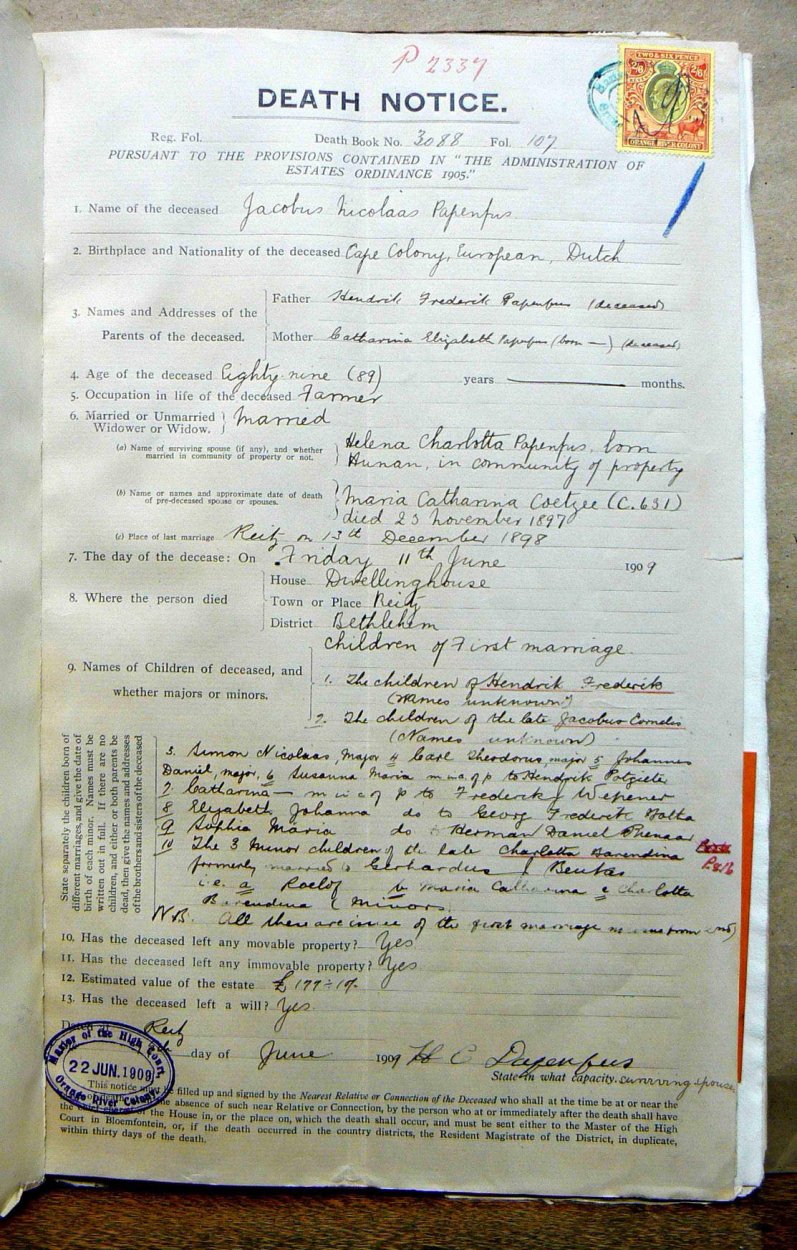 P 2337
TWO & SIX PENCE
2/6 2/6
ORANGE RIVER COLONY
DEATH NOTICE.
Reg. Fol. Death Book No. 3088 Fol. 107
PURSUANT TO THE PROVISIONS CONTAINED IN "THE ADMINISTRATION OF
ESTATES ORDINANCE 1905."
1. Name of the deceased Jacobus Nicolaas Papenfus
2. Birthplace and Nationality of the deceased Cape Colony, European, Dutch
3. Names and Addresses of the Parents of the deceased.
Father Hendrik Frederik Papenfus (deceased)
Mother Catharina Elizabeth Papenfus (born —) (deceased)
4. Age of the deceased Eighty-nine (89) years — months.
5. Occupation in life of the deceased Farmer
6. Married or Unmarried
Widower or Widow. Married
(a) Name of surviving spouse (if any), and whether
married in community of property or not.
Helena Charlotta Papenfus, born
Human, in community of property
(b) Name or names and approximate date of death
of pre-deceased spouse or spouses.
Maria Catharina Coetzee (C.631)
died 23 November 1897
(c) Place of last marriage Reitz on 13th December 1898
7. The day of the decease: On Friday 11th June 1909
8. Where the person died
House Dwellinghouse
Town or Place Reitz
District Bethlehem
children of First marriage.
9. Names of Children of deceased, and
whether majors or minors.
1. The children of Hendrik Frederik
(names unknown)
2. The children of the late Jacobus Cornelis
(Names unknown)
State separately the children born of
different marriages, and give the date of
birth of each minor. Names must be
written out in full. If there are no
children, and either or both parents be
dead, then give the names and addresses
of the brothers and sisters of the deceased
3. Simon Nicolaas, Major 4 Carl Theodorus, major 5 Johannes
Daniel, major, 6 Susanna Maria m in c of p to Hendrik Potgieter
7 Catharina — m in c of p to Frederik J Wepener
8 Elizabeth Johanna do to Georg Frederik Botha
9 Sophia Maria do Herman Daniel
10 The 3 Minor children of the late Charlotta Barendina
formerly married to Gerhardus J Beukes
i.e. a Roelof b Maria Catharina c Charlotta
Barendina (Minors)
N.B. All these are issue of the first marriage
10. Has the deceased left any movable property? Yes
11. Has the deceased left any immovable property? Yes
12. Estimated value of the estate £177
13. Has the deceased left a will? Yes.
Dated at Reitz
day of June 1909 H C Papenfus
State in what capacity. surviving spouse
Master of the High Court,
22 JUN. 1909
Orange River Colony
This notice must be filled up and signed by the Nearest Relative or Connection of the Deceased who shall at the time be at or near the
absence of such near Relative or Connection, by the person who at or immediately after the death shall have
the House in, or the place on, which the death shall occur, and must be sent either to the Master of the High
Court in Bloemfontein, or, if the death occurred in the country districts, the Resident Magistrate of the District, in duplicate,
within thirty days of the death.